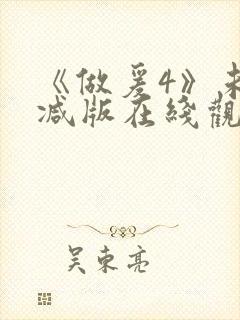 《做爰4》未
减版在线觀
吴东亮